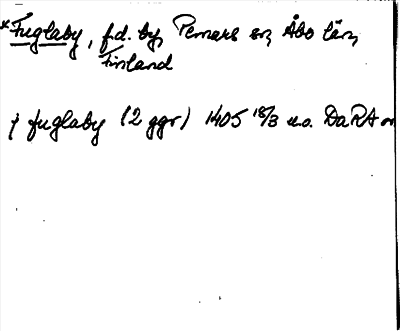 *Fuglaby, f.d. by, Pemars sn, Åbo län,
Finland
f fuglaby (2 ggr) 1405 18/3 u.o. DaRA or